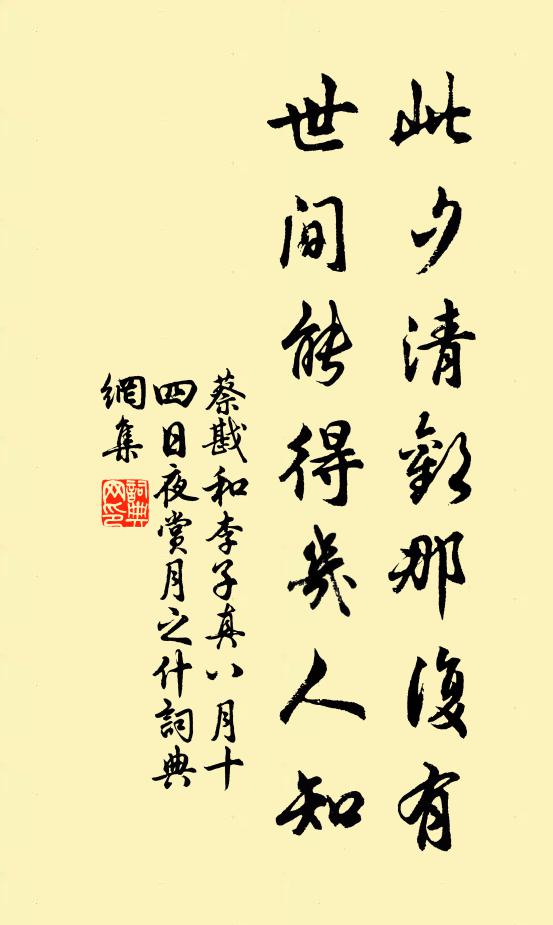 此夕清歡那復有
世間能得幾人知
蔡戡和李子真八月十
四日夜賞月之什詞典
網集
詞典
网印